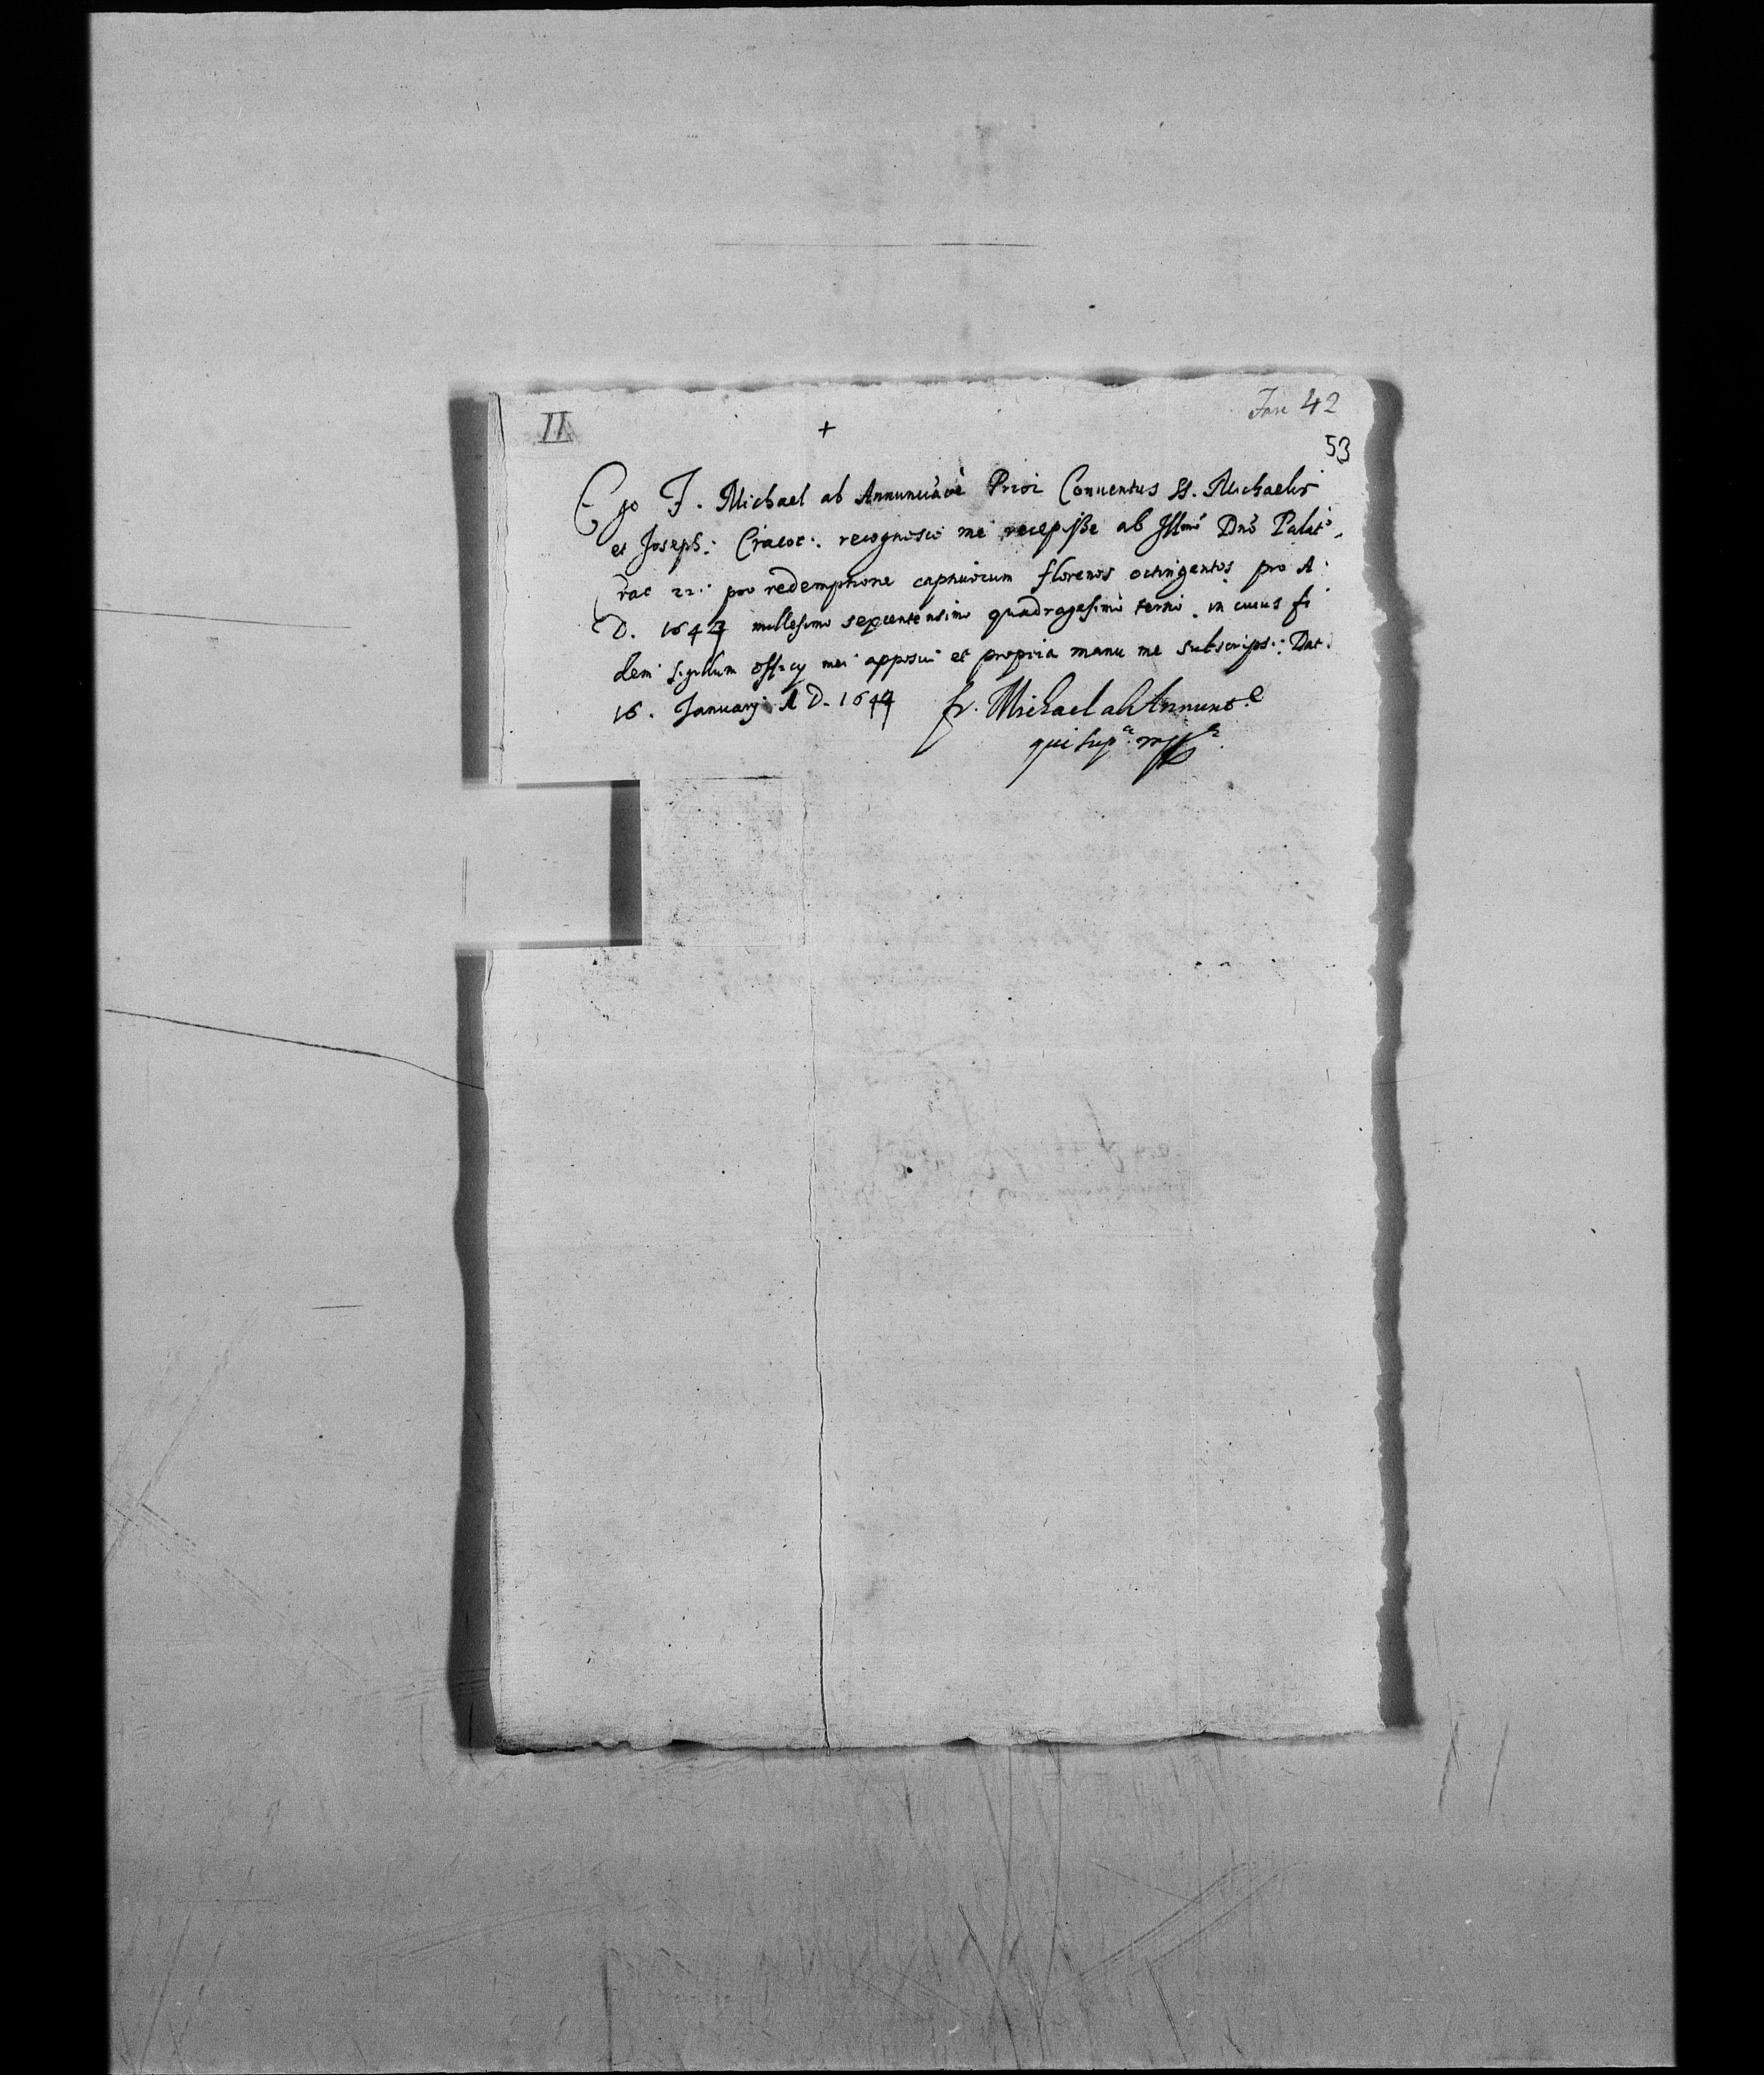 II
+
Fasc 42
53
Ego F. Michael ab Annunciãoẽ Prior Conventus SS. Michaelis
et Joseph: Cracoc: recognosco me recepisse ab Illmo Dno Palat:
Crac pro redemptione captivorum florenos octingentos pro A:
D. 1643 millesimo sexcentesimo quadragesimo tertio. in cuius fi
dem sigillum officij mei apposui et propria manu me subscripsi: Dat:
16. Januarij A D. 1644 fr. Michael ab Annunt.e
qui supa. mppa.